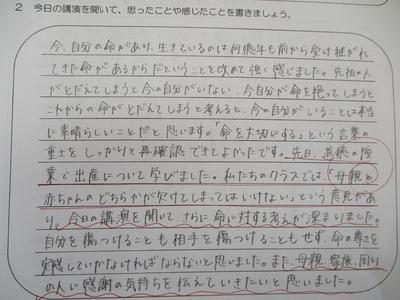 2 今日の講演を聞いて、思ったことや感じたことを書きましょう。
今、自分の命があり、生きているのは何億年も前から受け継がれ
てきた命があるからだということを改めて強く感じました。先祖の人
がとだえてしまうと今の自分がいない、今自分が命を絶ってしまうと
これからの命がとだえてしまうと考えると、今の自分がいることは本当
に素晴らしいことだと思います。「命を大切にする」という言葉の
重さをしっかりと再確認できてよかったです。先日、道徳の授
業で出産について学びました。私たちのクラスでは、「母親と
赤ちゃんのどちらかが欠けてしまってはいけない」という意見があ
り、今日の講演を聞いて、さらに命に対する考えが深まりました。
自分を傷つけることも相手を傷つけることもせず、命の尊さを
実感していかなければならないと思いました。また、母親、家族、周り
の人に感謝の気持ちを伝えていきたいと思いました。